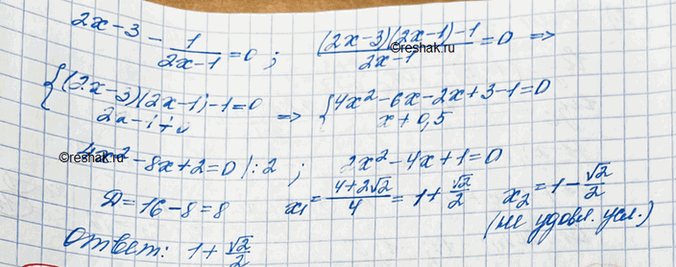 2x-3 - 1/(2x-1) = 0 ; ((2x-3)(2x-1)-1)/(2x-1) = 0 =>
©reshak.ru
{(2x-3)(2x-1)-1=0 => {4x²-6x-2x+3-1=0
2x-1≠0 x≠0,5
©reshak.ru
4x²-8x+2=0 |:2 ; 2x²-4x+1=0
D=16-8=8 x₁=(4+2√2)/4 = 1+√2/2 x₂=1-√2/2
(не удовл. усл.)
Ответ: 1+√2/2